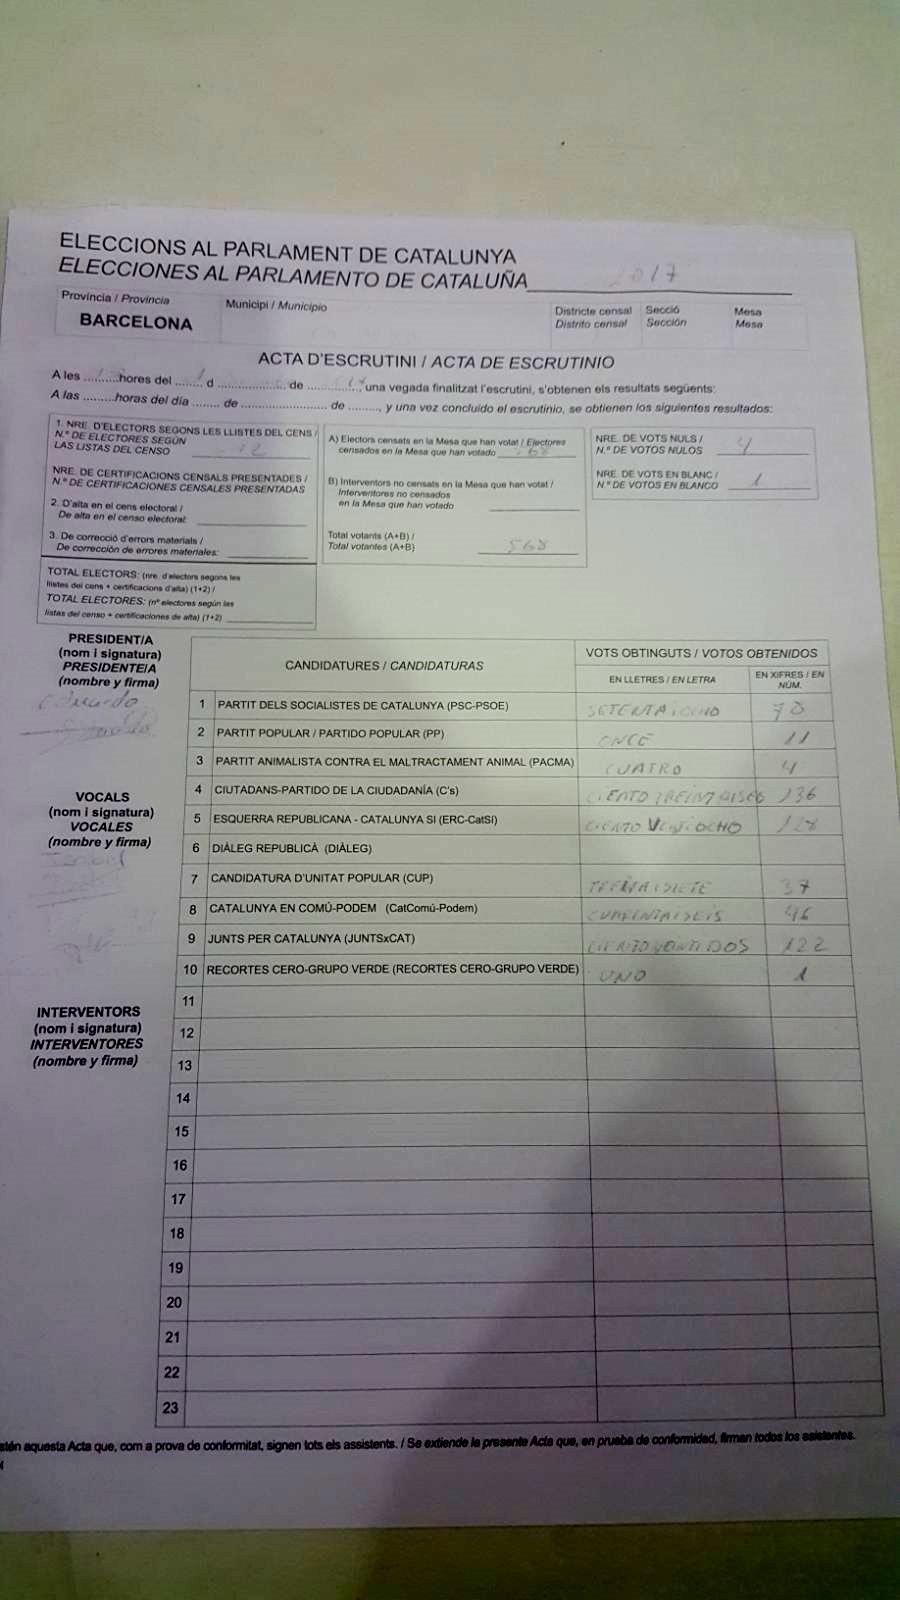 ELECCIONS AL PARLAMENT DE CATALUNYA
ELECCIONES AL PARLAMENTO DE CATALUÑA 2017
Província / Provincia
BARCELONA
Municipi / Municipio
Districte censal
Distrito censal
Secció
Sección
Mesa
Mesa
ACTA D'ESCRUTINI / ACTA DE ESCRUTINIO
A les .........hores del ........ d .................... de ..............., una vegada finalitzat l'escrutini, s'obtenen els resultats següents:
A las .........horas del día ........ de ......................... de ........, y una vez concluido el escrutinio, se obtienen los siguientes resultados:
1. NRE. D'ELECTORS SEGONS LES LLISTES DEL CENS /
N.º DE ELECTORES SEGÚN
LAS LISTAS DEL CENSO
NRE. DE CERTIFICACIONS CENSALS PRESENTADES /
N.º DE CERTIFICACIONES CENSALES PRESENTADAS
2. D'alta en el cens electoral /
De alta en el censo electoral:
3. De correcció d'errors materials /
De corrección de errores materiales:
TOTAL ELECTORS: (nre. d'electors segons les
llistes del cens + certificacions d'alta) (1+2) /
TOTAL ELECTORES: (nº electores según las
listas del censo + certificaciones de alta) (1+2)
A) Electors censats en la Mesa que han votat / Electores
censados en la Mesa que han votado 568
B) Interventors no censats en la Mesa que han votat /
Interventores no censados
en la Mesa que han votado
Total votants (A+B) /
Total votantes (A+B) 568
NRE. DE VOTS NULS /
N.º DE VOTOS NULOS 4
NRE. DE VOTS EN BLANC /
N.º DE VOTOS EN BLANCO 1
PRESIDENT/A
(nom i signatura)
PRESIDENTE/A
(nombre y firma)
Eduardo
VOCALS
(nom i signatura)
VOCALES
(nombre y firma)
INTERVENTORS
(nom i signatura)
INTERVENTORES
(nombre y firma)
CANDIDATURES / CANDIDATURAS
VOTS OBTINGUTS / VOTOS OBTENIDOS
EN LLETRES / EN LETRA
EN XIFRES / EN NÚM.
1 PARTIT DELS SOCIALISTES DE CATALUNYA (PSC-PSOE) SETENTAIOCHO 78
2 PARTIT POPULAR / PARTIDO POPULAR (PP) ONCE 11
3 PARTIT ANIMALISTA CONTRA EL MALTRACTAMENT ANIMAL (PACMA) CUATRO 4
4 CIUTADANS-PARTIDO DE LA CIUDADANÍA (C's) CIENTO TREINTAISEIS 136
5 ESQUERRA REPUBLICANA - CATALUNYA SI (ERC-CatSí) CIENTO VENTIOCHO 128
6 DIÀLEG REPUBLICÀ (DIÀLEG)
7 CANDIDATURA D'UNITAT POPULAR (CUP) TREINTAISIETE 37
8 CATALUNYA EN COMÚ-PODEM (CatComú-Podem) CUARENTAISEIS 46
9 JUNTS PER CATALUNYA (JUNTSxCAT) CIENTO VENTIDOS 122
10 RECORTES CERO-GRUPO VERDE (RECORTES CERO-GRUPO VERDE) UNO 1
11
12
13
14
15
16
17
18
19
20
21
22
23
aquesta Acta que, com a prova de conformitat, signen tots els assistents. / Se extiende la presente Acta que, en prueba de conformidad, firman todos los asistentes.